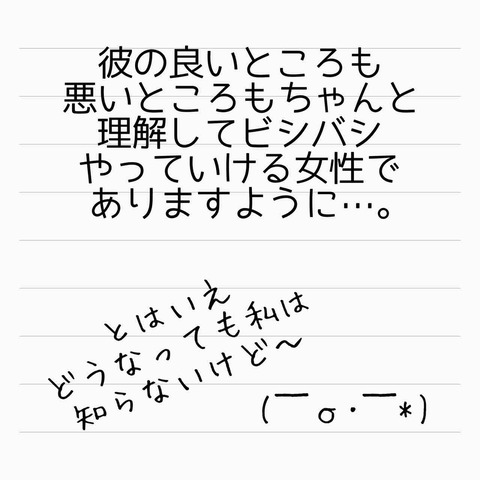 彼の良いところも
悪いところもちゃんと
理解してビシバシ
やっていける女性で
ありますように…。
とはいえ
どうなっても私は
知らないけど～
(￣σ・￣*)